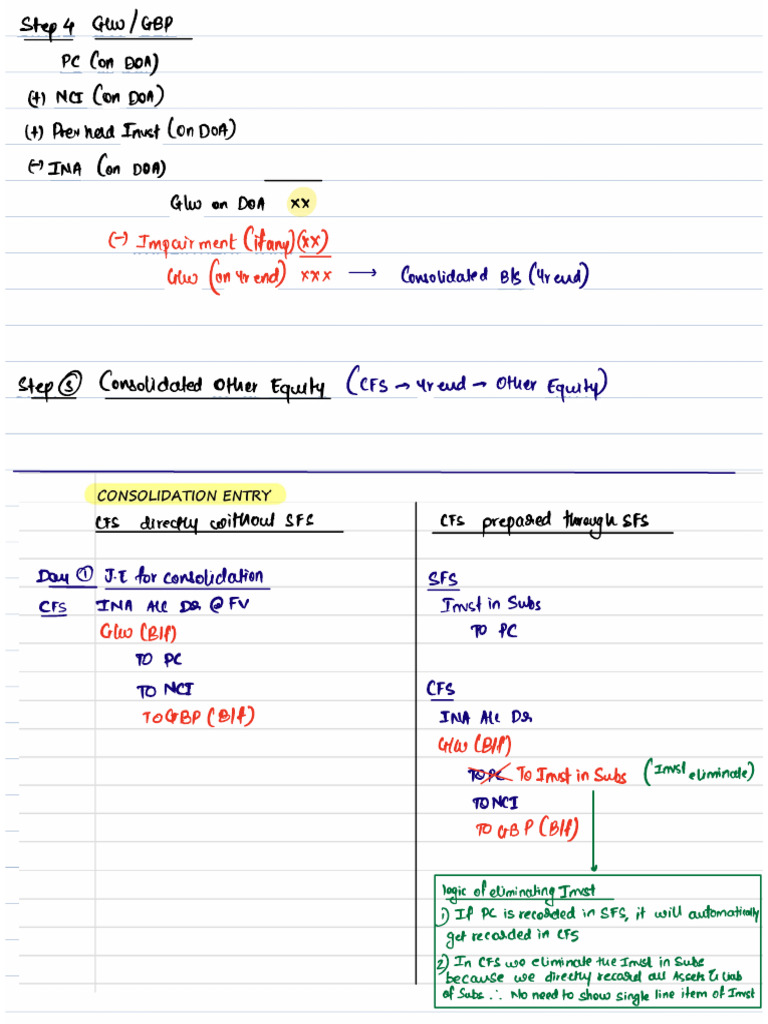 Step 4 Glw/GBP
PC (on DOA)
(+) NCI (on DOA)
(+) Prev held Invst (on DOA)
(-) INA (on DOA)
Glw on DOA xx
(-) Impairment (if any) (xx)
Glw (on yr end) xxx → Consolidated B/s (yr end)
Step ⑤ Consolidated Other Equity (CFS → yr end → Other Equity)
CONSOLIDATION ENTRY
CFS directly without SFS
Day ① J.E for consolidation
CFS INA A/c Dr @ FV
Glw (B/f)
TO PC
TO NCI
TO GBP (B/f)
CFS prepared through SFS
SFS
Invst in Subs
TO PC
CFS
INA A/c Dr
Glw (B/f)
TO PC To Invst in Subs (Invst eliminate)
TO NCI
TO GBP (B/f)
logic of eliminating Invst
1) If PC is recorded in SFS, it will automatically
get recorded in CFS
2) In CFS we eliminate the Invst in Subs
because we directly record all Assets & Liab
of Subs ∴ No need to show single line item of Invst